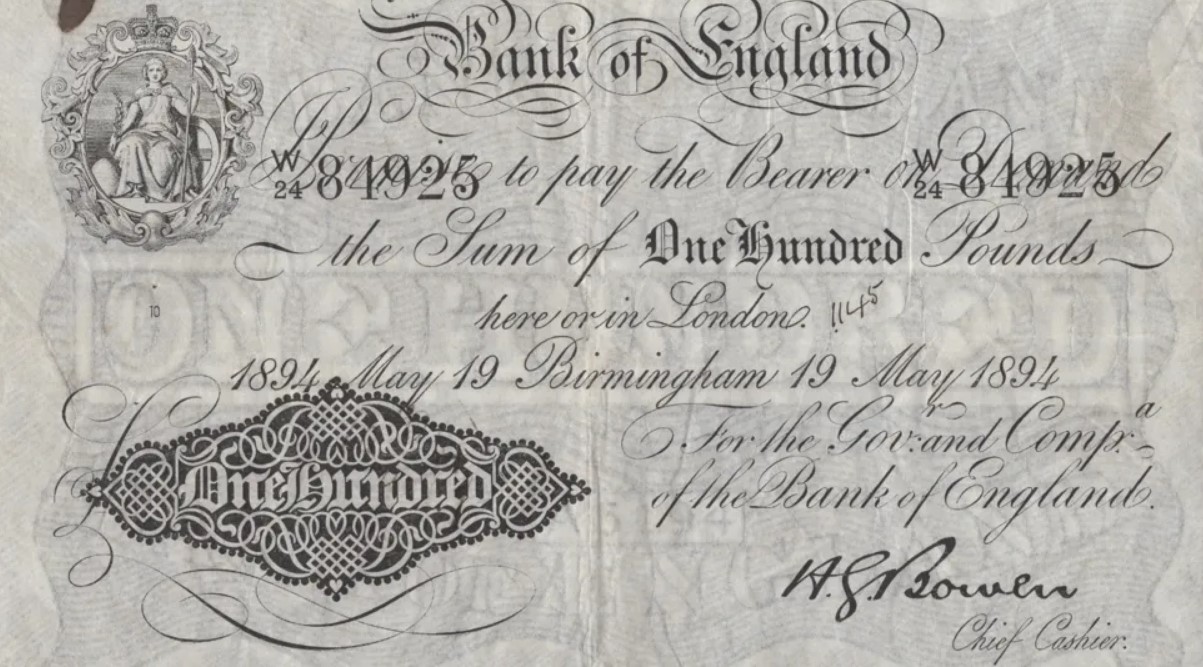 Bank of England
W
24 84925
W
24 84925
I Promise to pay the Bearer on Demand
the Sum of One Hundred Pounds
here or in London.
1145
10
1894 May 19 Birmingham 19 May 1894
For the Gov:r and Comp:a
of the Bank of England.
One Hundred
H.G. Bowen
Chief Cashier.
ONE HUNDRED